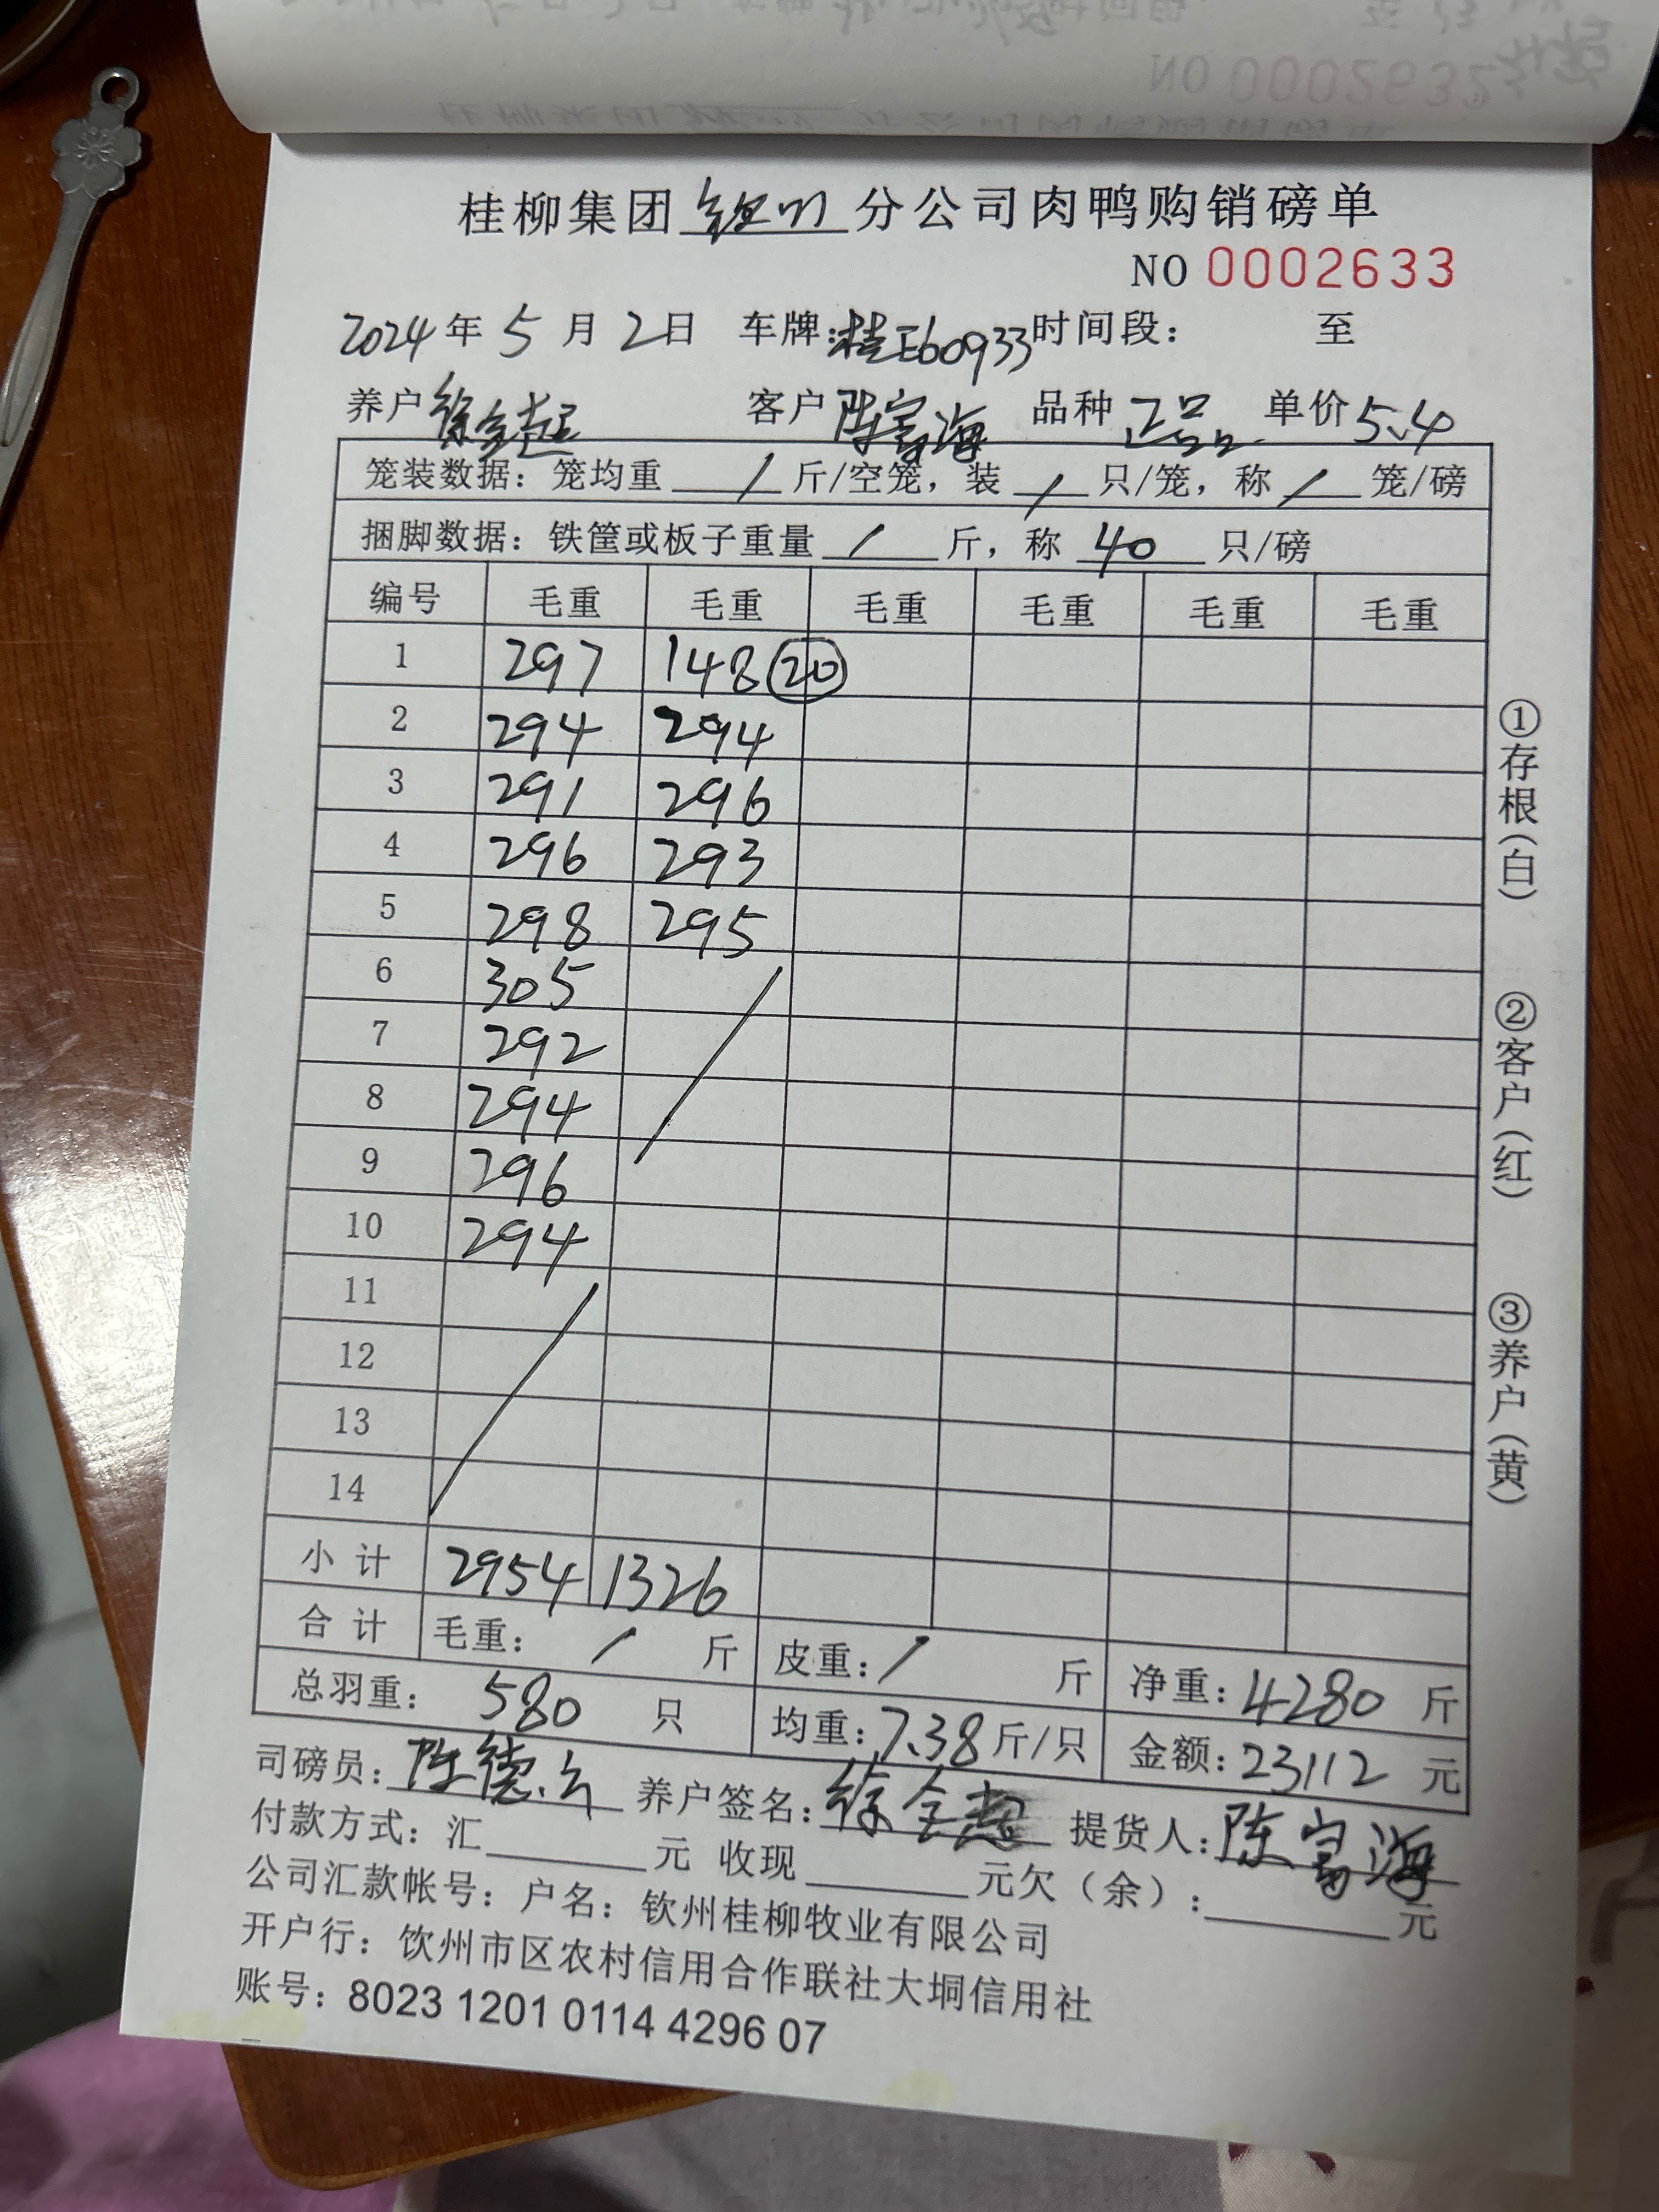 NO 0002632
桂柳集团 钦州 分公司肉鸭购销磅单
NO 0002633
2024 年 5 月 2 日 车牌:桂E60933 时间段: 至
养户 徐全起 客户 陈富海 品种 正品 单价 5.4
笼装数据:笼均重 / 斤/空笼,装 / 只/笼,称 / 笼/磅
捆脚数据:铁筐或板子重量 / 斤,称 40 只/磅
编号 毛重 毛重 毛重 毛重 毛重 毛重
1 297 148 20
2 294 294
3 291 296
4 296 293
5 298 295
6 305
7 292
8 294
9 296
10 294
11
12
13
14
小计 2954 1326
合计 毛重: / 斤 皮重: / 斤 净重:4280 斤
总羽重: 580 只 均重:7.38 斤/只 金额:23112 元
司磅员: 陈德 养户签名:徐全起 提货人:陈富海
付款方式:汇 元 收现 元欠(余): 元
公司汇款帐号:户名:钦州桂柳牧业有限公司
开户行:钦州市区农村信用合作联社大垌信用社
账号:8023 1201 0114 4296 07
①存根(白) ②客户(红) ③养户(黄)